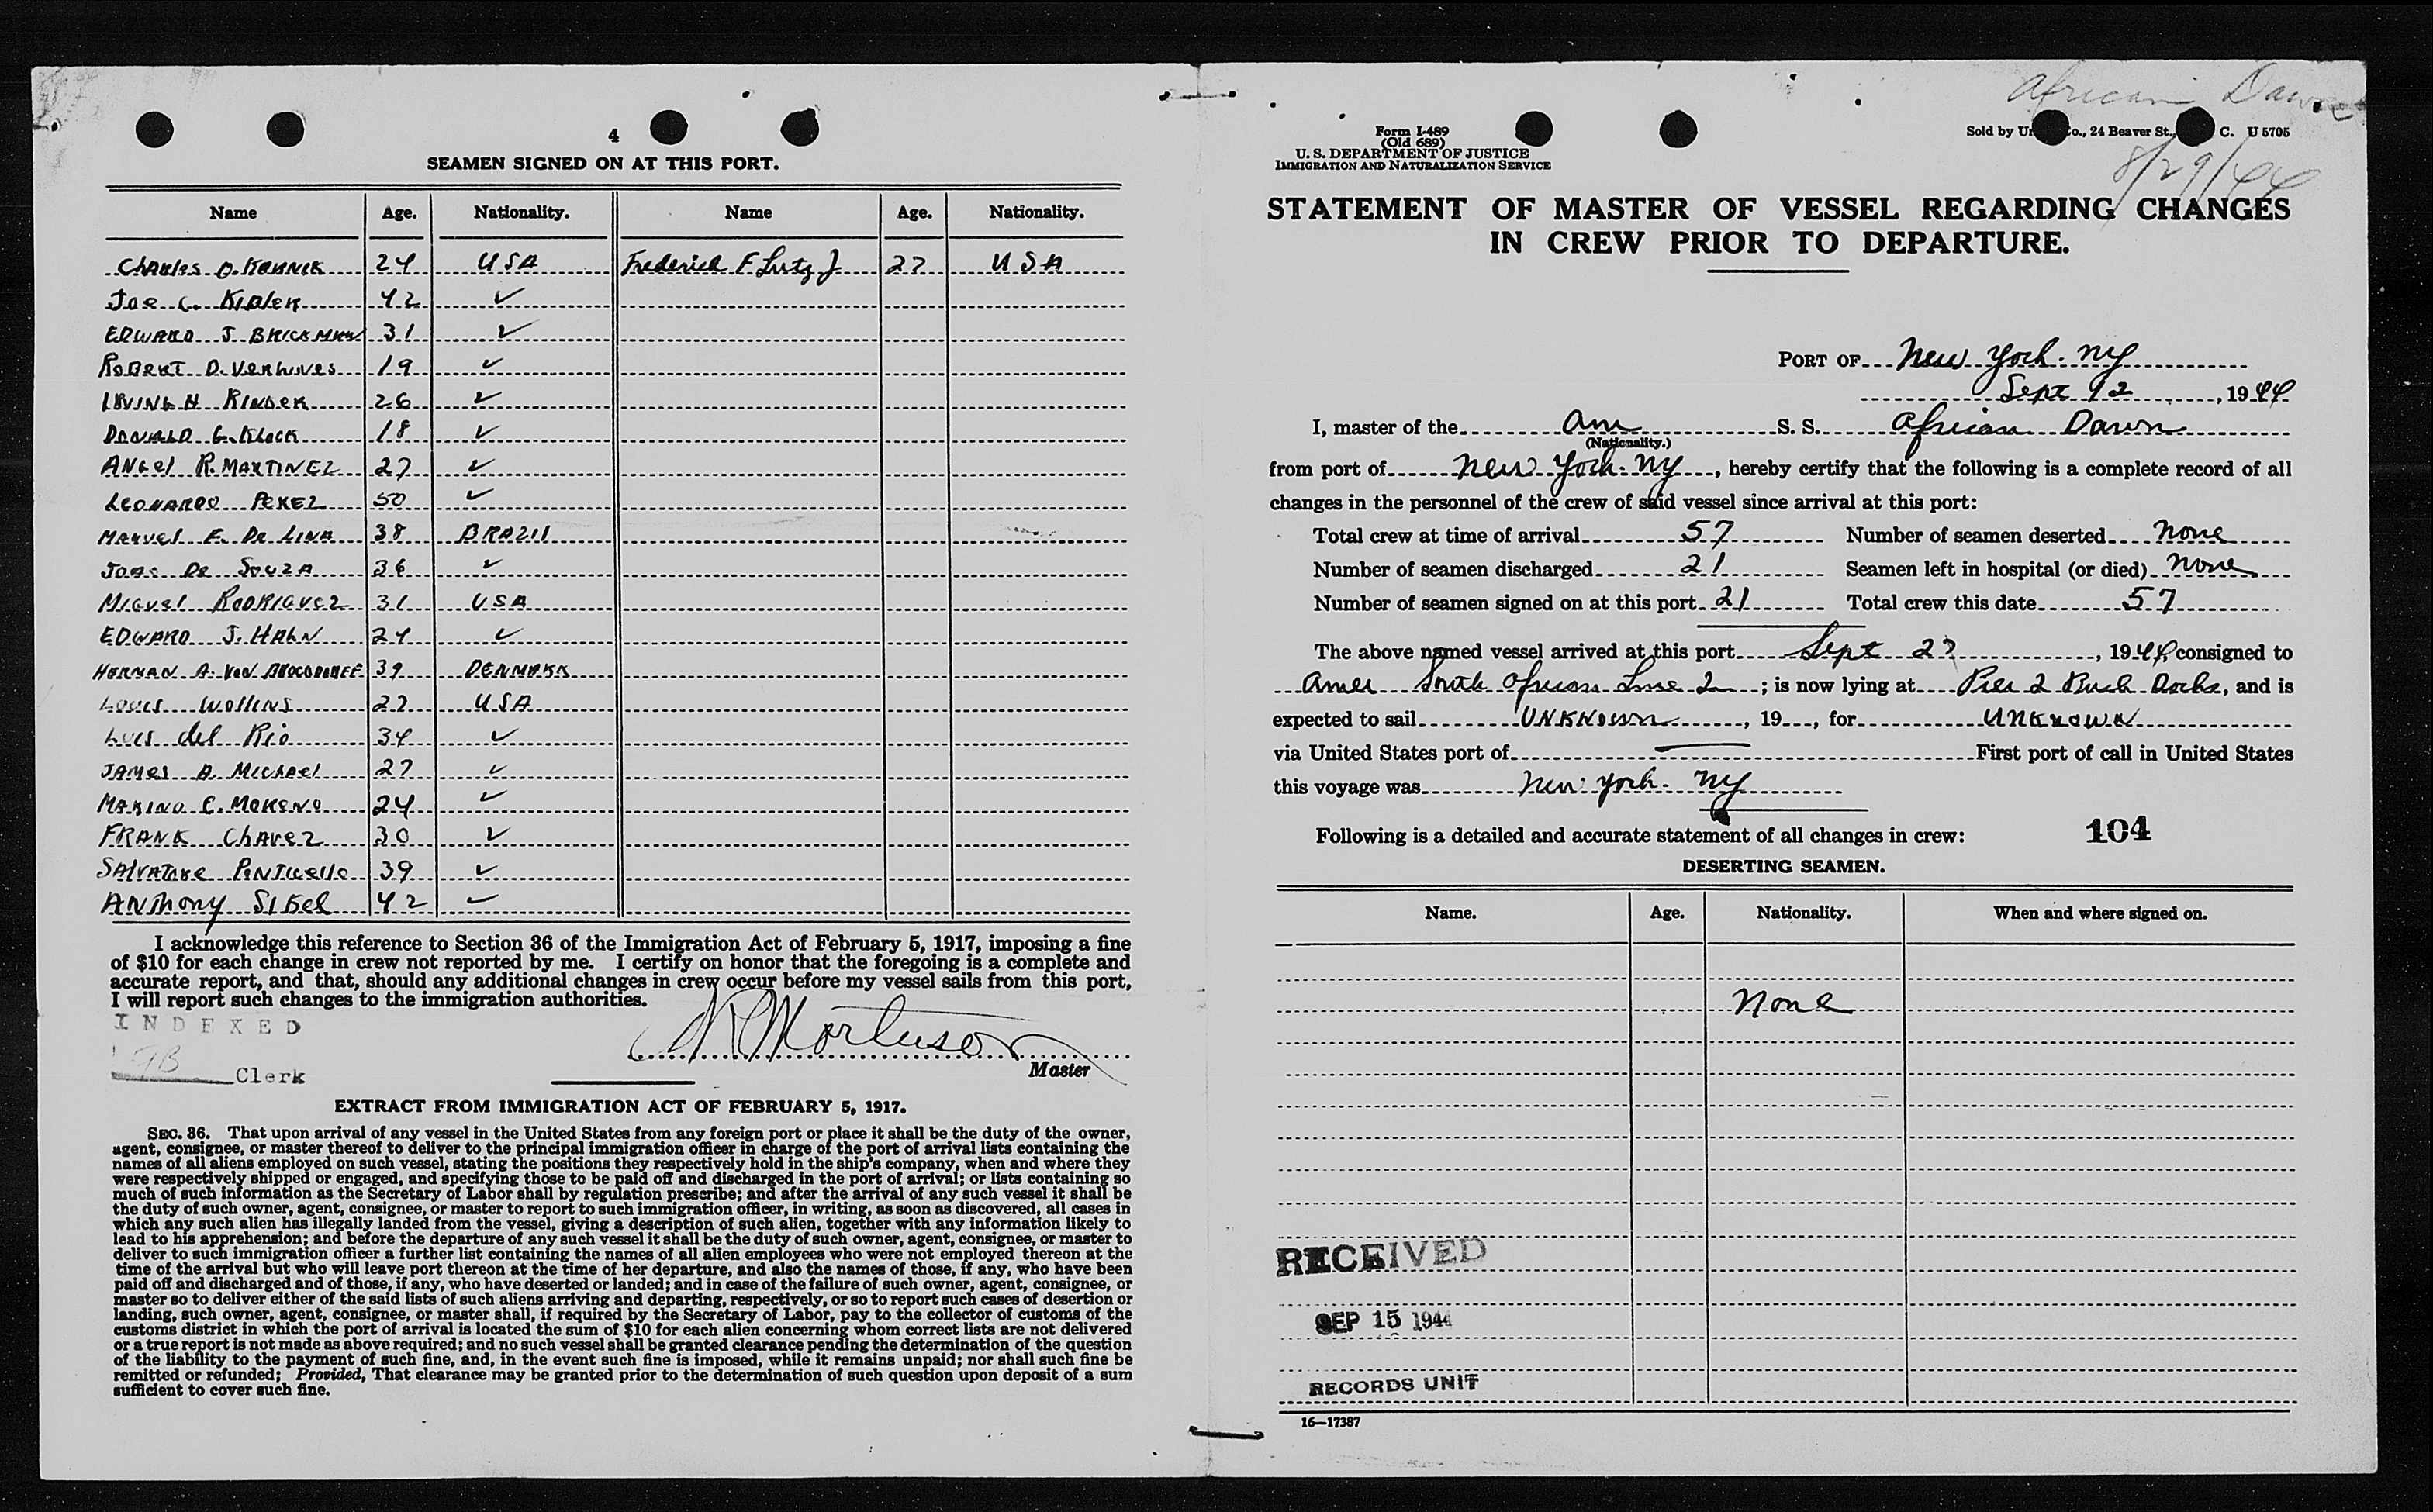 4
SEAMEN SIGNED ON AT THIS PORT.
Name Age. Nationality. Name Age. Nationality.
Charles D. 24 USA Frederick F Lutz J 22 USA
Joe C. 42 ✓
EDWARD J. BRICKMAN 31 ✓
ROBERT D. 19 ✓
IRVING H RINDER 26 ✓
DONALD G. KLOCK 18 ✓
ANGEl R. MARTINEZ 27 ✓
LEONARDO PEREZ 50 ✓
MANUEL E. DE LIMA 38 BRAZIl
JOAO DE SOUZA 36 ✓
MIGUEl RODRIGUEZ 31 USA
EDWARD J. HAHN 24 ✓
HERMAN A. VON BROCKDORFF 39 DENMARK
LOUIS WOLLINS 22 USA
LUIS del Rio 34 ✓
JAMES A. MIChAEl 27 ✓
MARINO C. MORENO 24 ✓
FRANK ChAVEZ 30 ✓
SALVATORE PONTICELLO 39 ✓
ANThony 42 ✓
I acknowledge this reference to Section 36 of the Immigration Act of February 5, 1917, imposing a fine
of $10 for each change in crew not reported by me. I certify on honor that the foregoing is a complete and
accurate report, and that, should any additional changes in crew occur before my vessel sails from this port,
I will report such changes to the immigration authorities.
INDEXED
Clerk
Master
EXTRACT FROM IMMIGRATION ACT OF FEBRUARY 5, 1917.
SEC. 36. That upon arrival of any vessel in the United States from any foreign port or place it shall be the duty of the owner,
agent, consignee, or master thereof to deliver to the principal immigration officer in charge of the port of arrival lists containing the
names of all aliens employed on such vessel, stating the positions they respectively hold in the ship's company, when and where they
were respectively shipped or engaged, and specifying those to be paid off and discharged in the port of arrival; or lists containing so
much of such information as the Secretary of Labor shall by regulation prescribe; and after the arrival of any such vessel it shall be
the duty of such owner, agent, consignee, or master to report to such immigration officer, in writing, as soon as discovered, all cases in
which any such alien has illegally landed from the vessel, giving a description of such alien, together with any information likely to
lead to his apprehension; and before the departure of any such vessel it shall be the duty of such owner, agent, consignee, or master to
deliver to such immigration officer a further list containing the names of all alien employees who were not employed thereon at the
time of the arrival but who will leave port thereon at the time of her departure, and also the names of those, if any, who have been
paid off and discharged and of those, if any, who have deserted or landed; and in case of the failure of such owner, agent, consignee, or
master so to deliver either of the said lists of such aliens arriving and departing, respectively, or so to report such cases of desertion or
landing, such owner, agent, consignee, or master shall, if required by the Secretary of Labor, pay to the collector of customs of the
customs district in which the port of arrival is located the sum of $10 for each alien concerning whom correct lists are not delivered
or a true report is not made as above required; and no such vessel shall be granted clearance pending the determination of the question
of the liability to the payment of such fine, and, in the event such fine is imposed, while it remains unpaid; nor shall such fine be
remitted or refunded; Provided, That clearance may be granted prior to the determination of such question upon deposit of a sum
sufficient to cover such fine.
African Dawn
Form I-489
(Old 689)
U. S. DEPARTMENT OF JUSTICE
IMMIGRATION AND NATURALIZATION SERVICE
Sold by Co., 24 Beaver St., C. U 5705
8/29/44
STATEMENT OF MASTER OF VESSEL REGARDING CHANGES
IN CREW PRIOR TO DEPARTURE.
PORT OF New York. NY
Sept 12, 1944
I, master of the Am S. S. African Dawn
(Nationality.)
from port of New York. NY, hereby certify that the following is a complete record of all
changes in the personnel of the crew of said vessel since arrival at this port:
Total crew at time of arrival 57 Number of seamen deserted None
Number of seamen discharged 21 Seamen left in hospital (or died) None
Number of seamen signed on at this port 21 Total crew this date 57
The above named vessel arrived at this port Sept 2?, 1944 consigned to
Amer South African Line ; is now lying at Pier 2 Bush Docks, and is
expected to sail UNKNOWN, 19 , for UNKNOWN
via United States port of — First port of call in United States
this voyage was New York. NY
Following is a detailed and accurate statement of all changes in crew: 104
DESERTING SEAMEN.
Name. Age. Nationality. When and where signed on.
None
RECEIVED
SEP 15 1944
RECORDS UNIT
16—17387